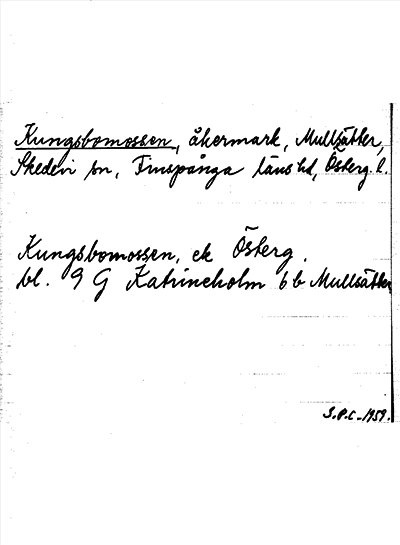 Kungsbomossen, åkermark, Mullsätter,
Skedevi sn, Finspånga läns hd, Österg. l.
Kungsbomossen, ek Österg.
bl. 9 G Katrineholm 6 b Mullsätter
S.P.C. 1959.